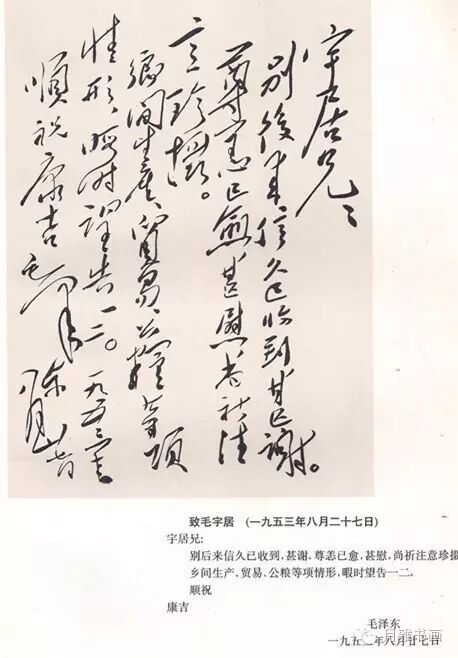 宇居兄：
别後来信久已收到甚謝。
尊恙已愈甚慰尚祈注
意珍攝。
鄉間生產、貿易、公糧等項
情形，暇時望告一二。
順祝康吉
毛澤東
一九五三年
八月廿七日
致毛宇居 （一九五三年八月二十七日）
宇居兄：
别后来信久已收到，甚谢。尊恙已愈，甚慰，尚祈注意珍摄
乡间生产、贸易、公粮等项情形，暇时望告一二。
顺祝
康吉
毛泽东
一九五三年八月廿七日
月雅书画